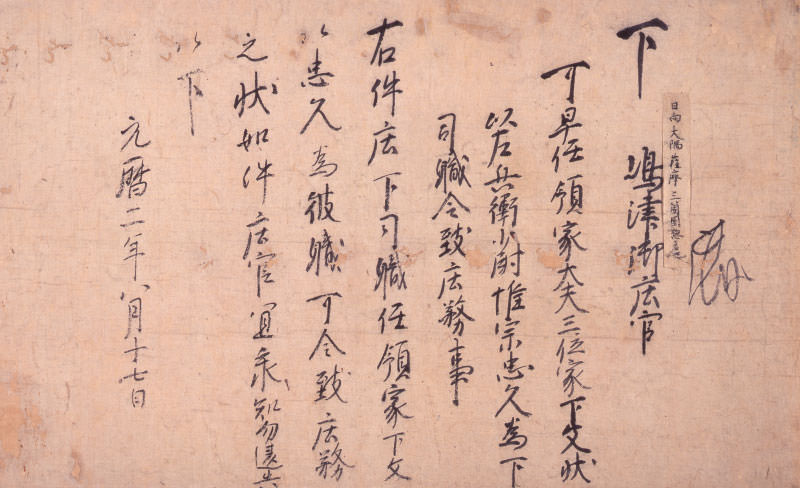 下　嶋津御庄官
日向大隅薩摩三箇国惣
可早任領家大夫三位家下文状
以左兵衛少尉惟宗忠久為下
司職令致庄務事
右件庄下司職任領家下文
以忠久為彼職可令致庄務
之状如件庄官宜承知勿違失
以下
元暦二年八月十七日